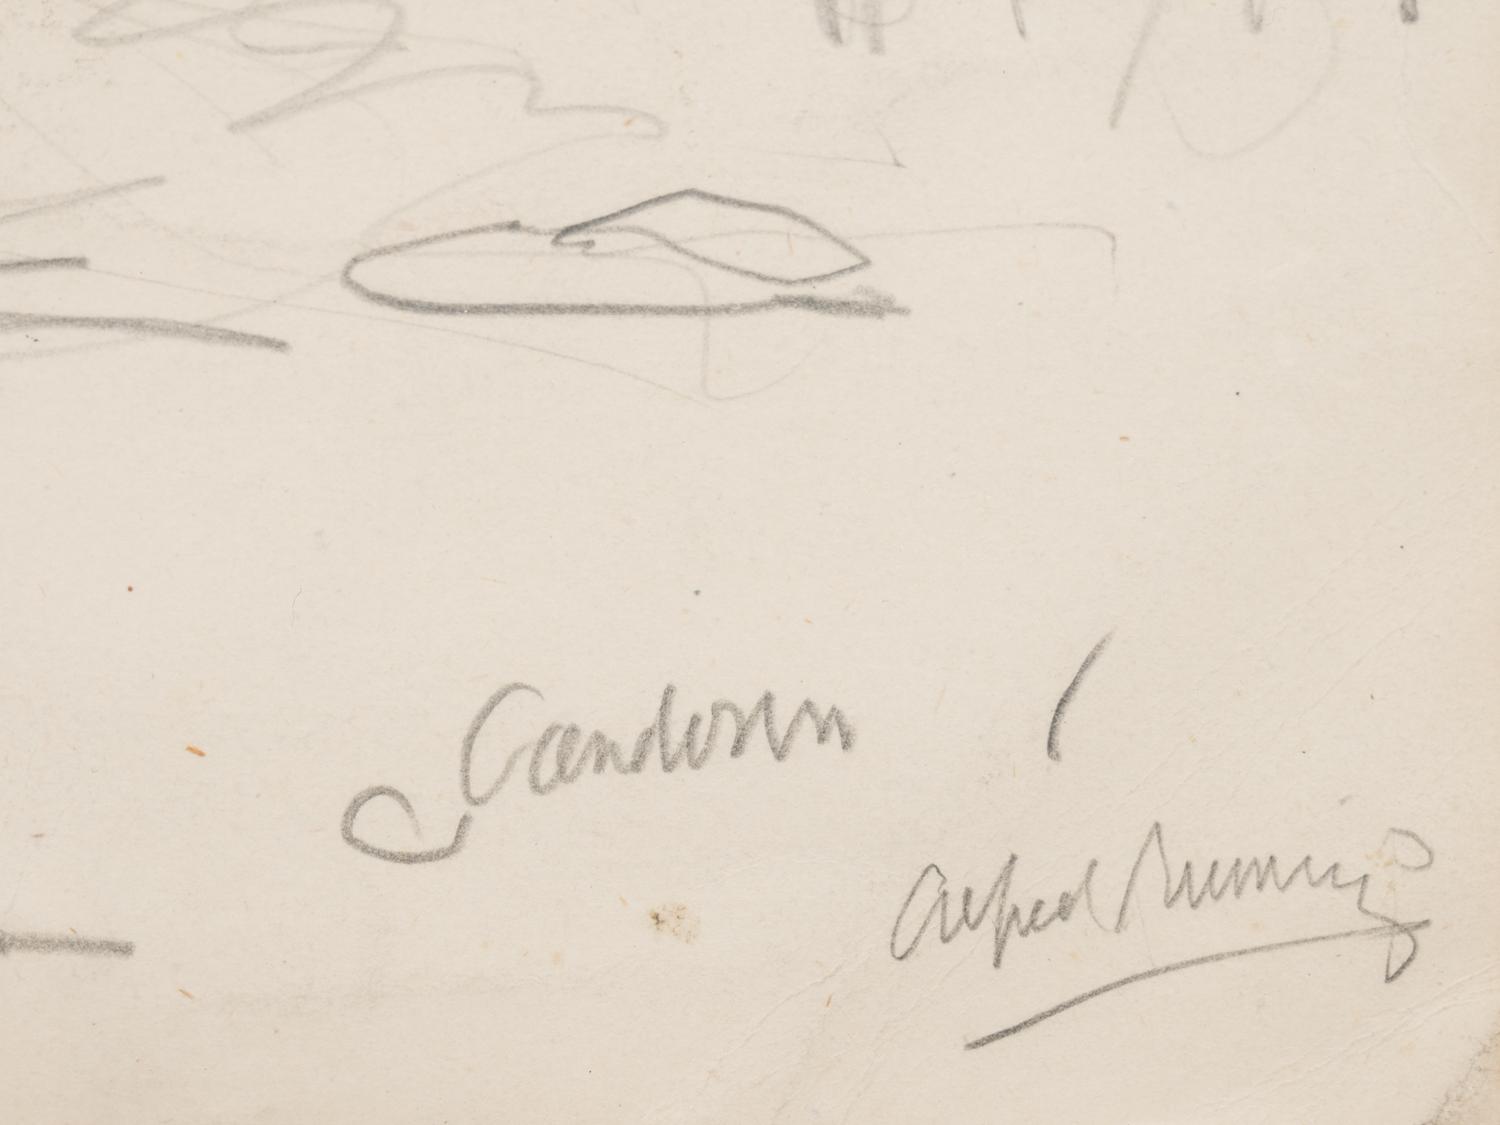 Sandown
Alfred Munnings